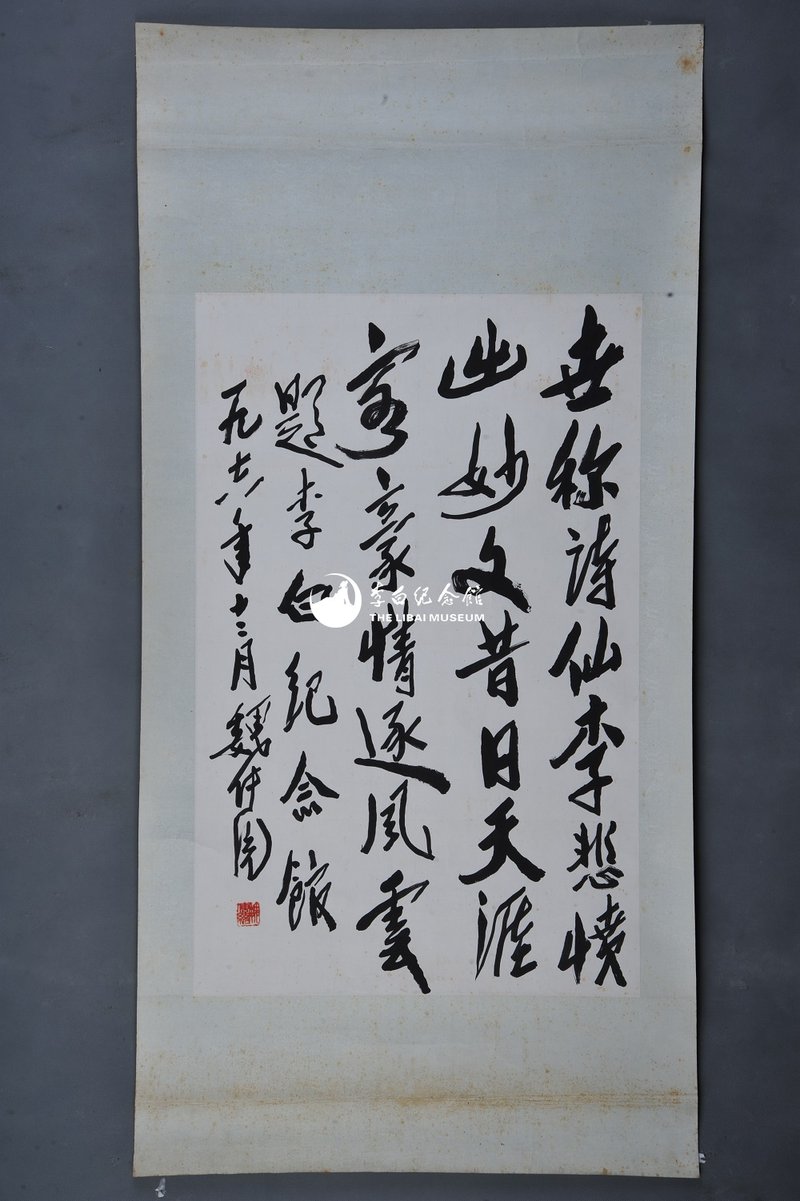 世称诗仙李悲愤
出妙文昔日天涯
客豪情逐风云
题李白纪念馆
十二月魏传
李白纪念馆
THE LIBAI MUSEUM